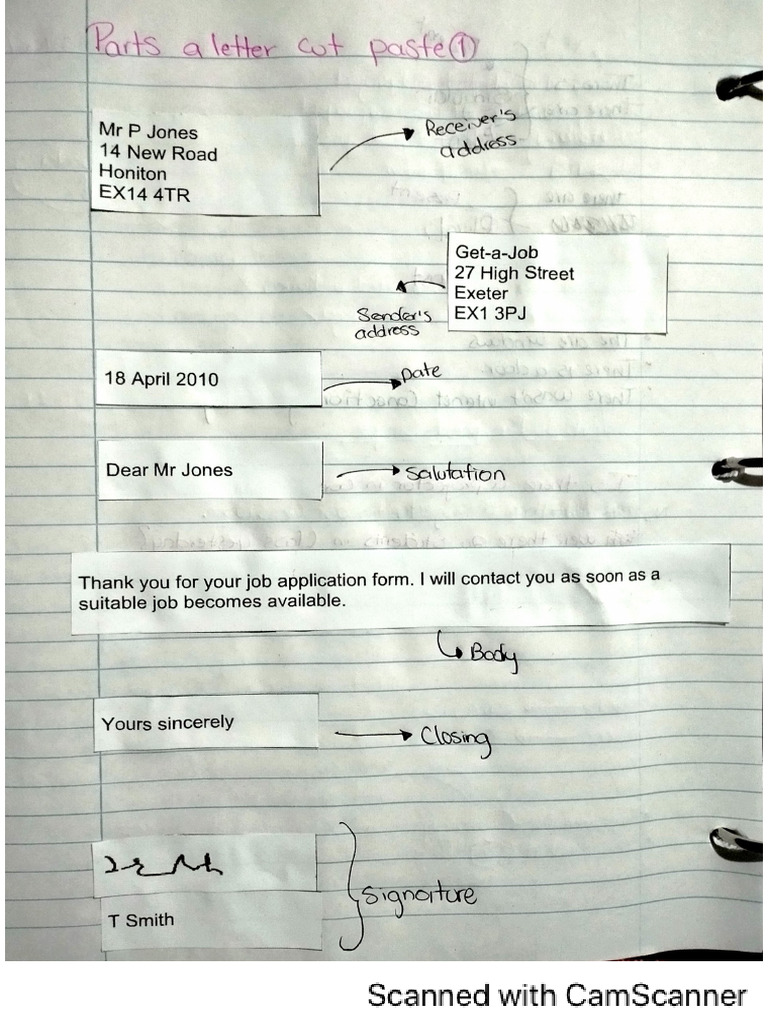 Parts a letter cut paste ①
Mr P Jones
14 New Road
Honiton
EX14 4TR
Receiver's
address
Get-a-Job
27 High Street
Exeter
EX1 3PJ
Sender's
address
18 April 2010
Date
Dear Mr Jones
Salutation
Thank you for your job application form. I will contact you as soon as a
suitable job becomes available.
Body
Yours sincerely
Closing
T Smith
Signature
Scanned with CamScanner